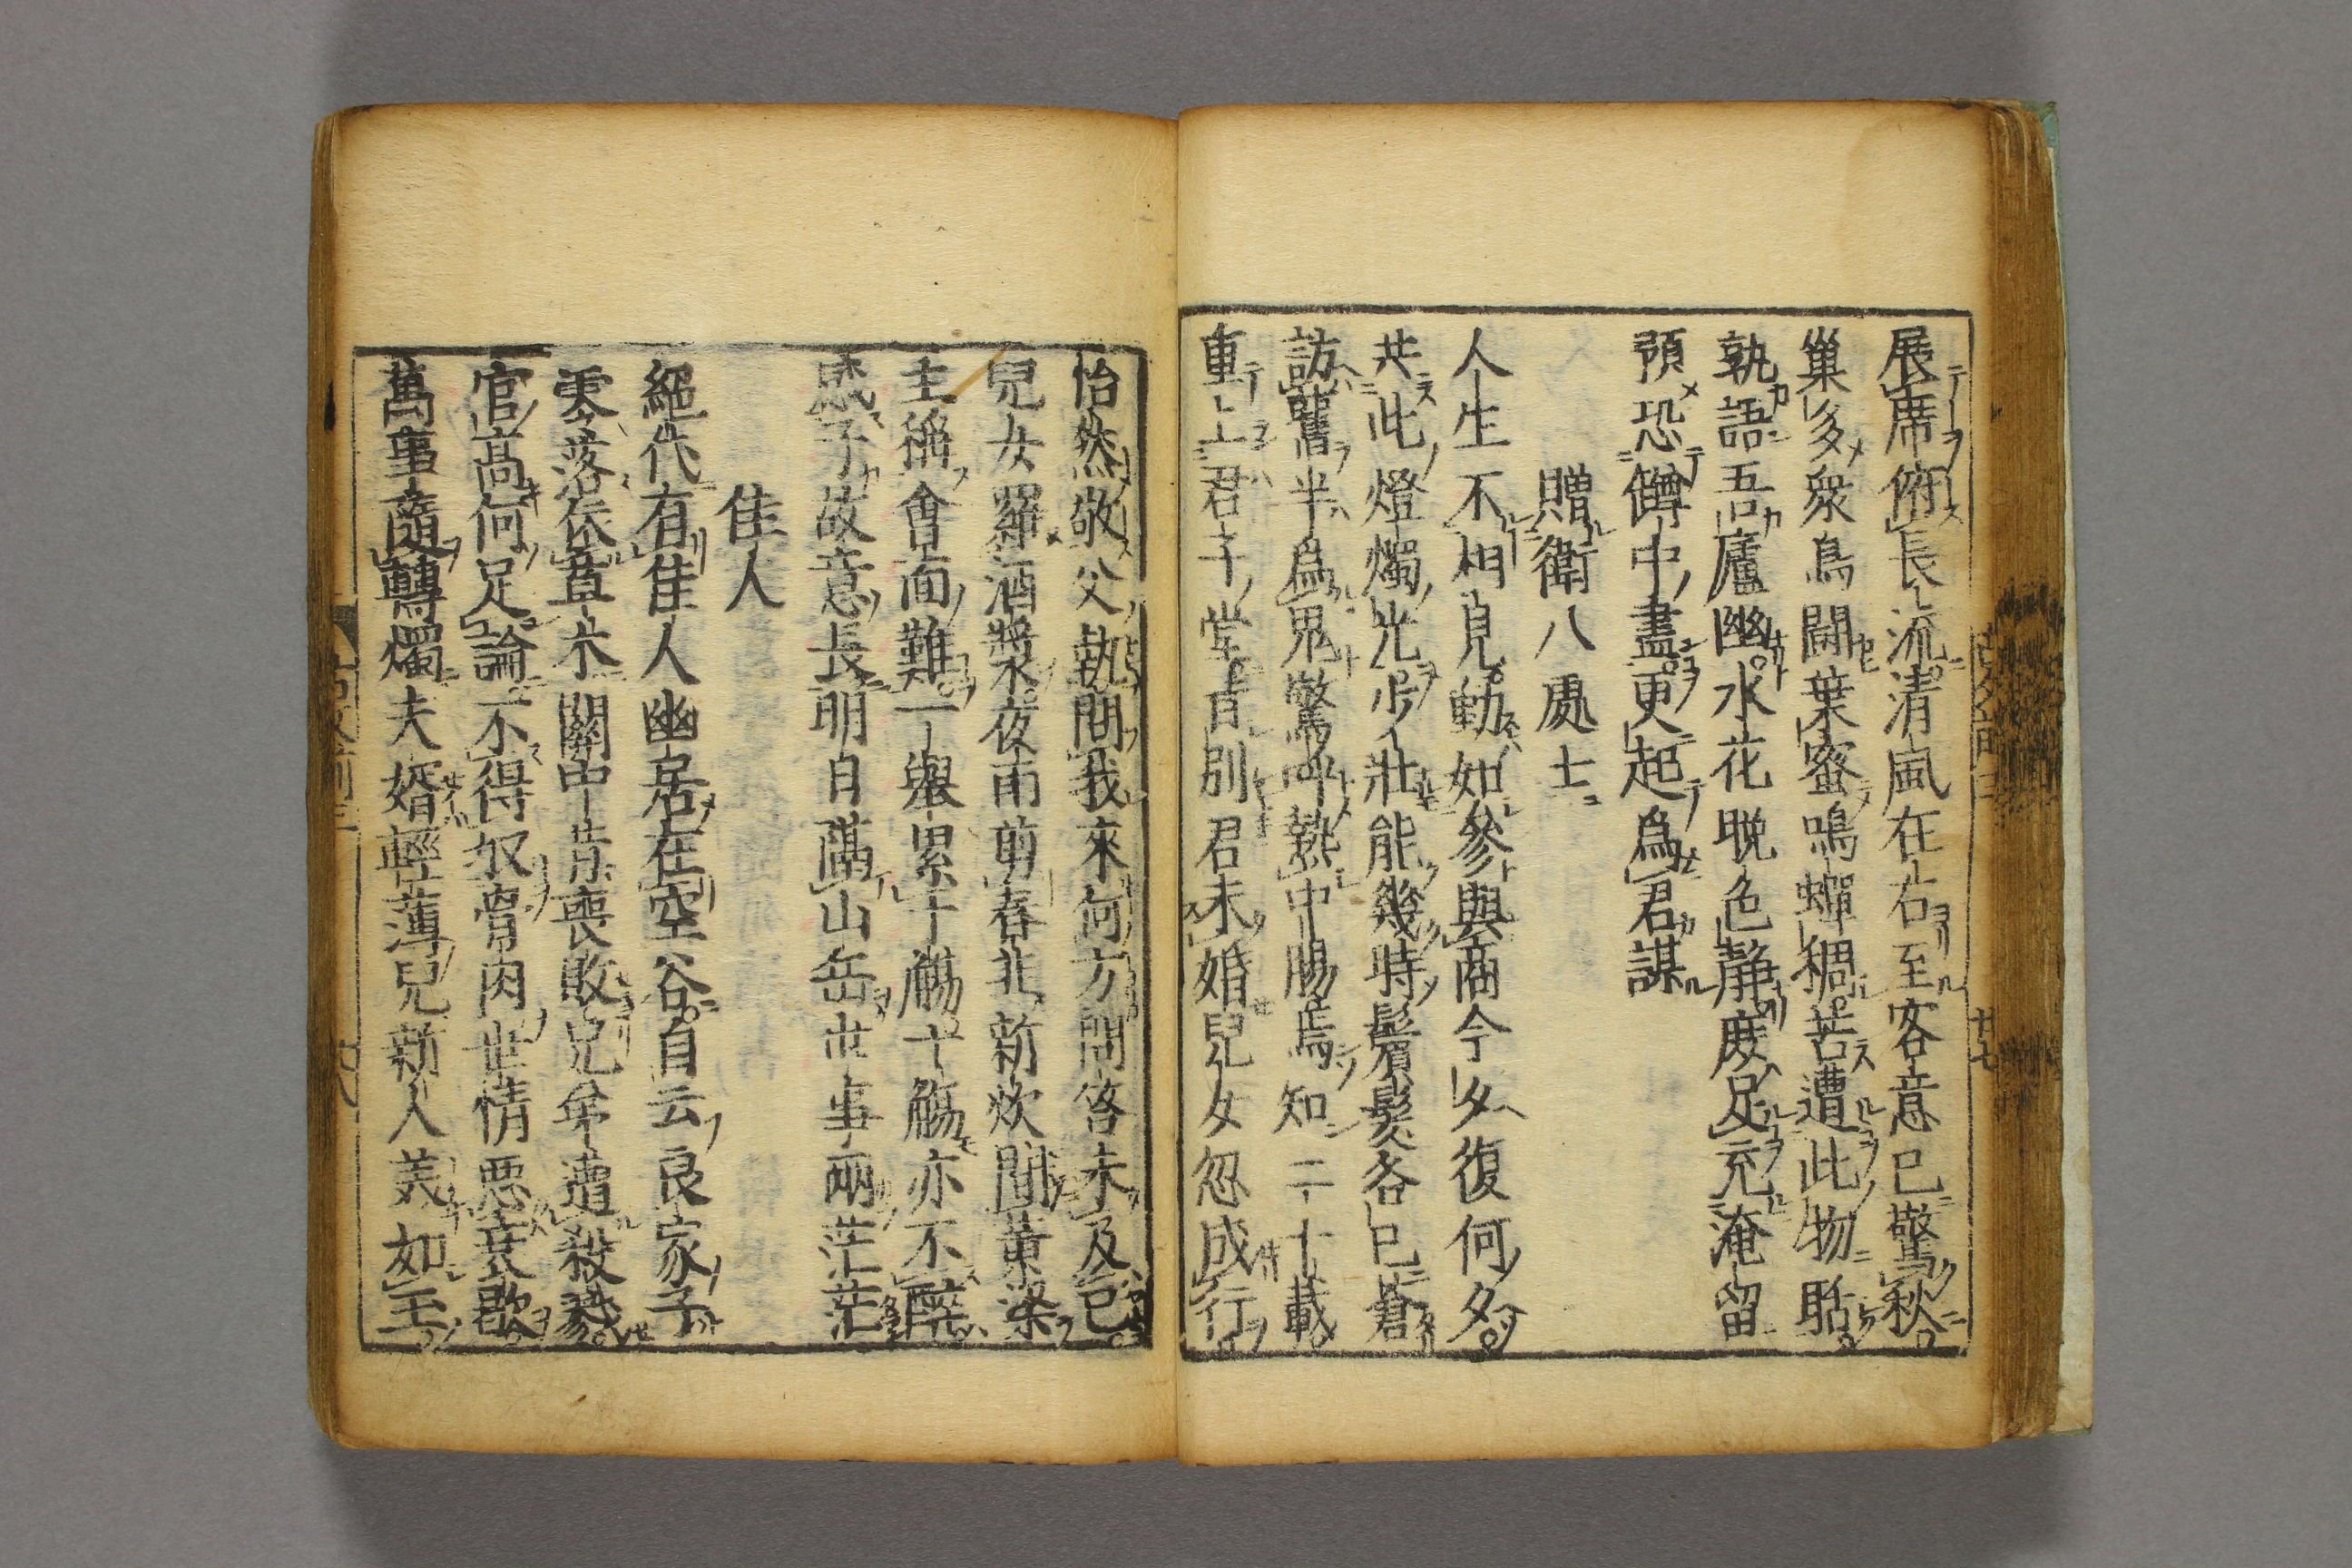 展席俯長流清風在右至客意已驚秋
巢多衆鳥鬪葉蜜鳴蟬稠苦遭此物聒
孰語吾廬幽水花晚色静庻足充淹留
預恐罇中盡更起爲君謀
贈衛八處士
人生不相見動如參與商今夕復何夕
共此燈燭光少壯能幾時鬢髮各已蒼
訪舊半爲鬼驚呼熱中腸焉知二十載
重上君子堂昔別君未婚兒女忽成行
怡然敬父執問我來何方問答未及已
兒女羅酒漿夜雨剪春韭新炊間黄粱
主稱會面難一舉累十觴十觴亦不醉
感子故意長明日隔山岳世事兩茫茫
佳人
絕代有佳人幽居在空谷自云良家子
零落依草木關中昔喪敗兄弟遭殺戮
官高何足論不得收骨肉世情惡衰歇
萬事隨轉燭夫婿輕薄兒新人美如玉